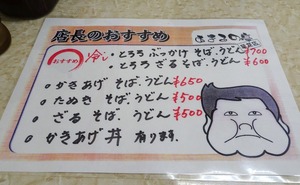 店長のおすすめ
おすすめ
冷し
・とろろ ぶっかけ そば、うどん ¥700
・とろろ ざる そば、うどん ¥600
・かきあげ そば、うどん ¥650
・たぬき そば、うどん ¥500
・ざる そば、うどん ¥500
・かきあげ丼 有ります。